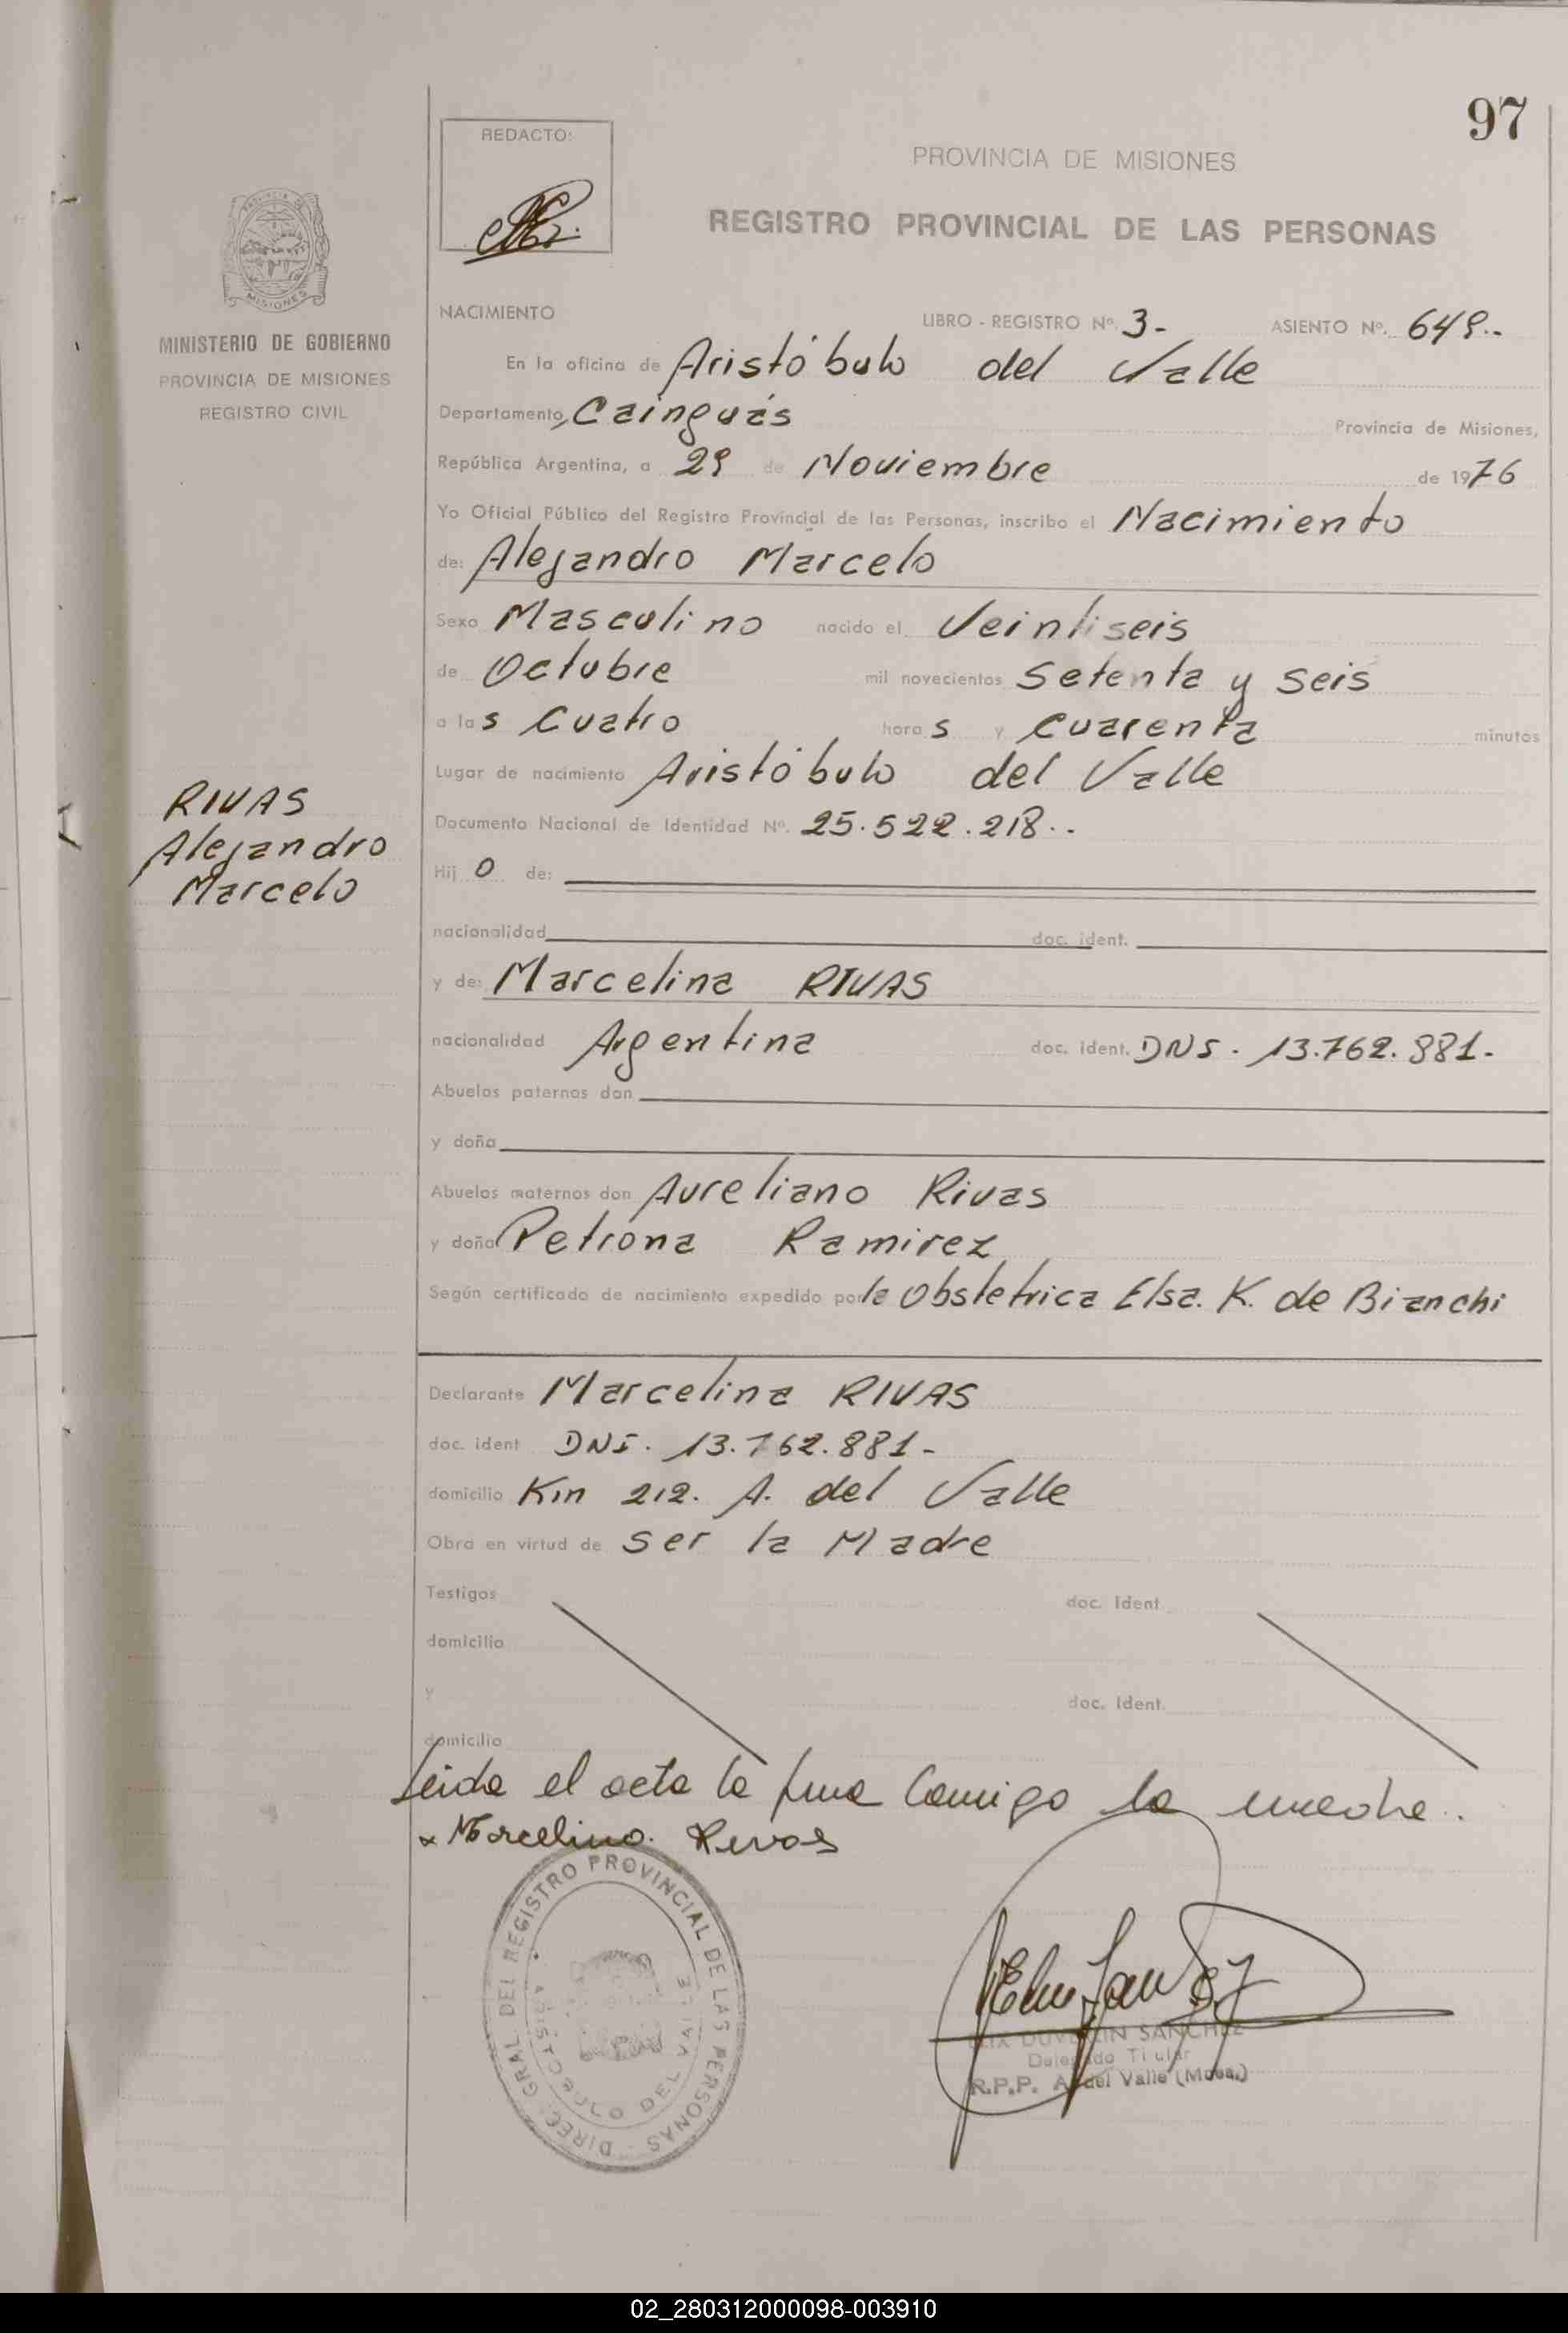 97
REDACTO:
PROVINCIA DE MISIONES
REGISTRO PROVINCIAL DE LAS PERSONAS
MISIONES
MINISTERIO DE GOBIERNO
PROVINCIA DE MISIONES
REGISTRO CIVIL
NACIMIENTO LIBRO - REGISTRO Nº. 3- ASIENTO Nº. 649.-
En la oficina de Aristóbulo del Valle
Departamento, Cainguás Provincia de Misiones,
República Argentina, a 29 de Noviembre de 1976
Yo Oficial Público del Registro Provincial de las Personas, inscribo el Nacimiento
de: Alejandro Marcelo
Sexo Masculino nacido el Veintiseis
de Octubre mil novecientos Setenta y Seis
a las Cuatro horas y Cuarenta minutos
Lugar de nacimiento Aristóbulo del Valle
Documento Nacional de Identidad Nº. 25.522.218.-
RIVAS
Alejandro
Marcelo
Hijo de:
nacionalidad doc. ident.
y de: Marcelina RIVAS
nacionalidad Argentina doc. ident. DNI. 13.762.881-
Abuelos paternos don
y doña
Abuelos maternos don Aureliano Rivas
y doña Petrona Ramirez
Según certificado de nacimiento expedido por la Obstetrica Elsa. K. de Bianchi
Declarante Marcelina RIVAS
doc. ident DNI. 13.762.881-
domicilio Km 212. A. del Valle
Obra en virtud de ser la Madre
Testigos doc. Ident
domicilio
y doc. Ident.
domicilio
Leida el acta la firma Conmigo la madre.
x Marcelina Rivas
DIREC. GRAL DEL REGISTRO PROVINCIAL DE LAS PERSONAS
ARISTOBULO DEL VALLE
SANCHEZ
Delegado Titular
R.P.P. A. del Valle (Mnes.)
02_280312000098-003910